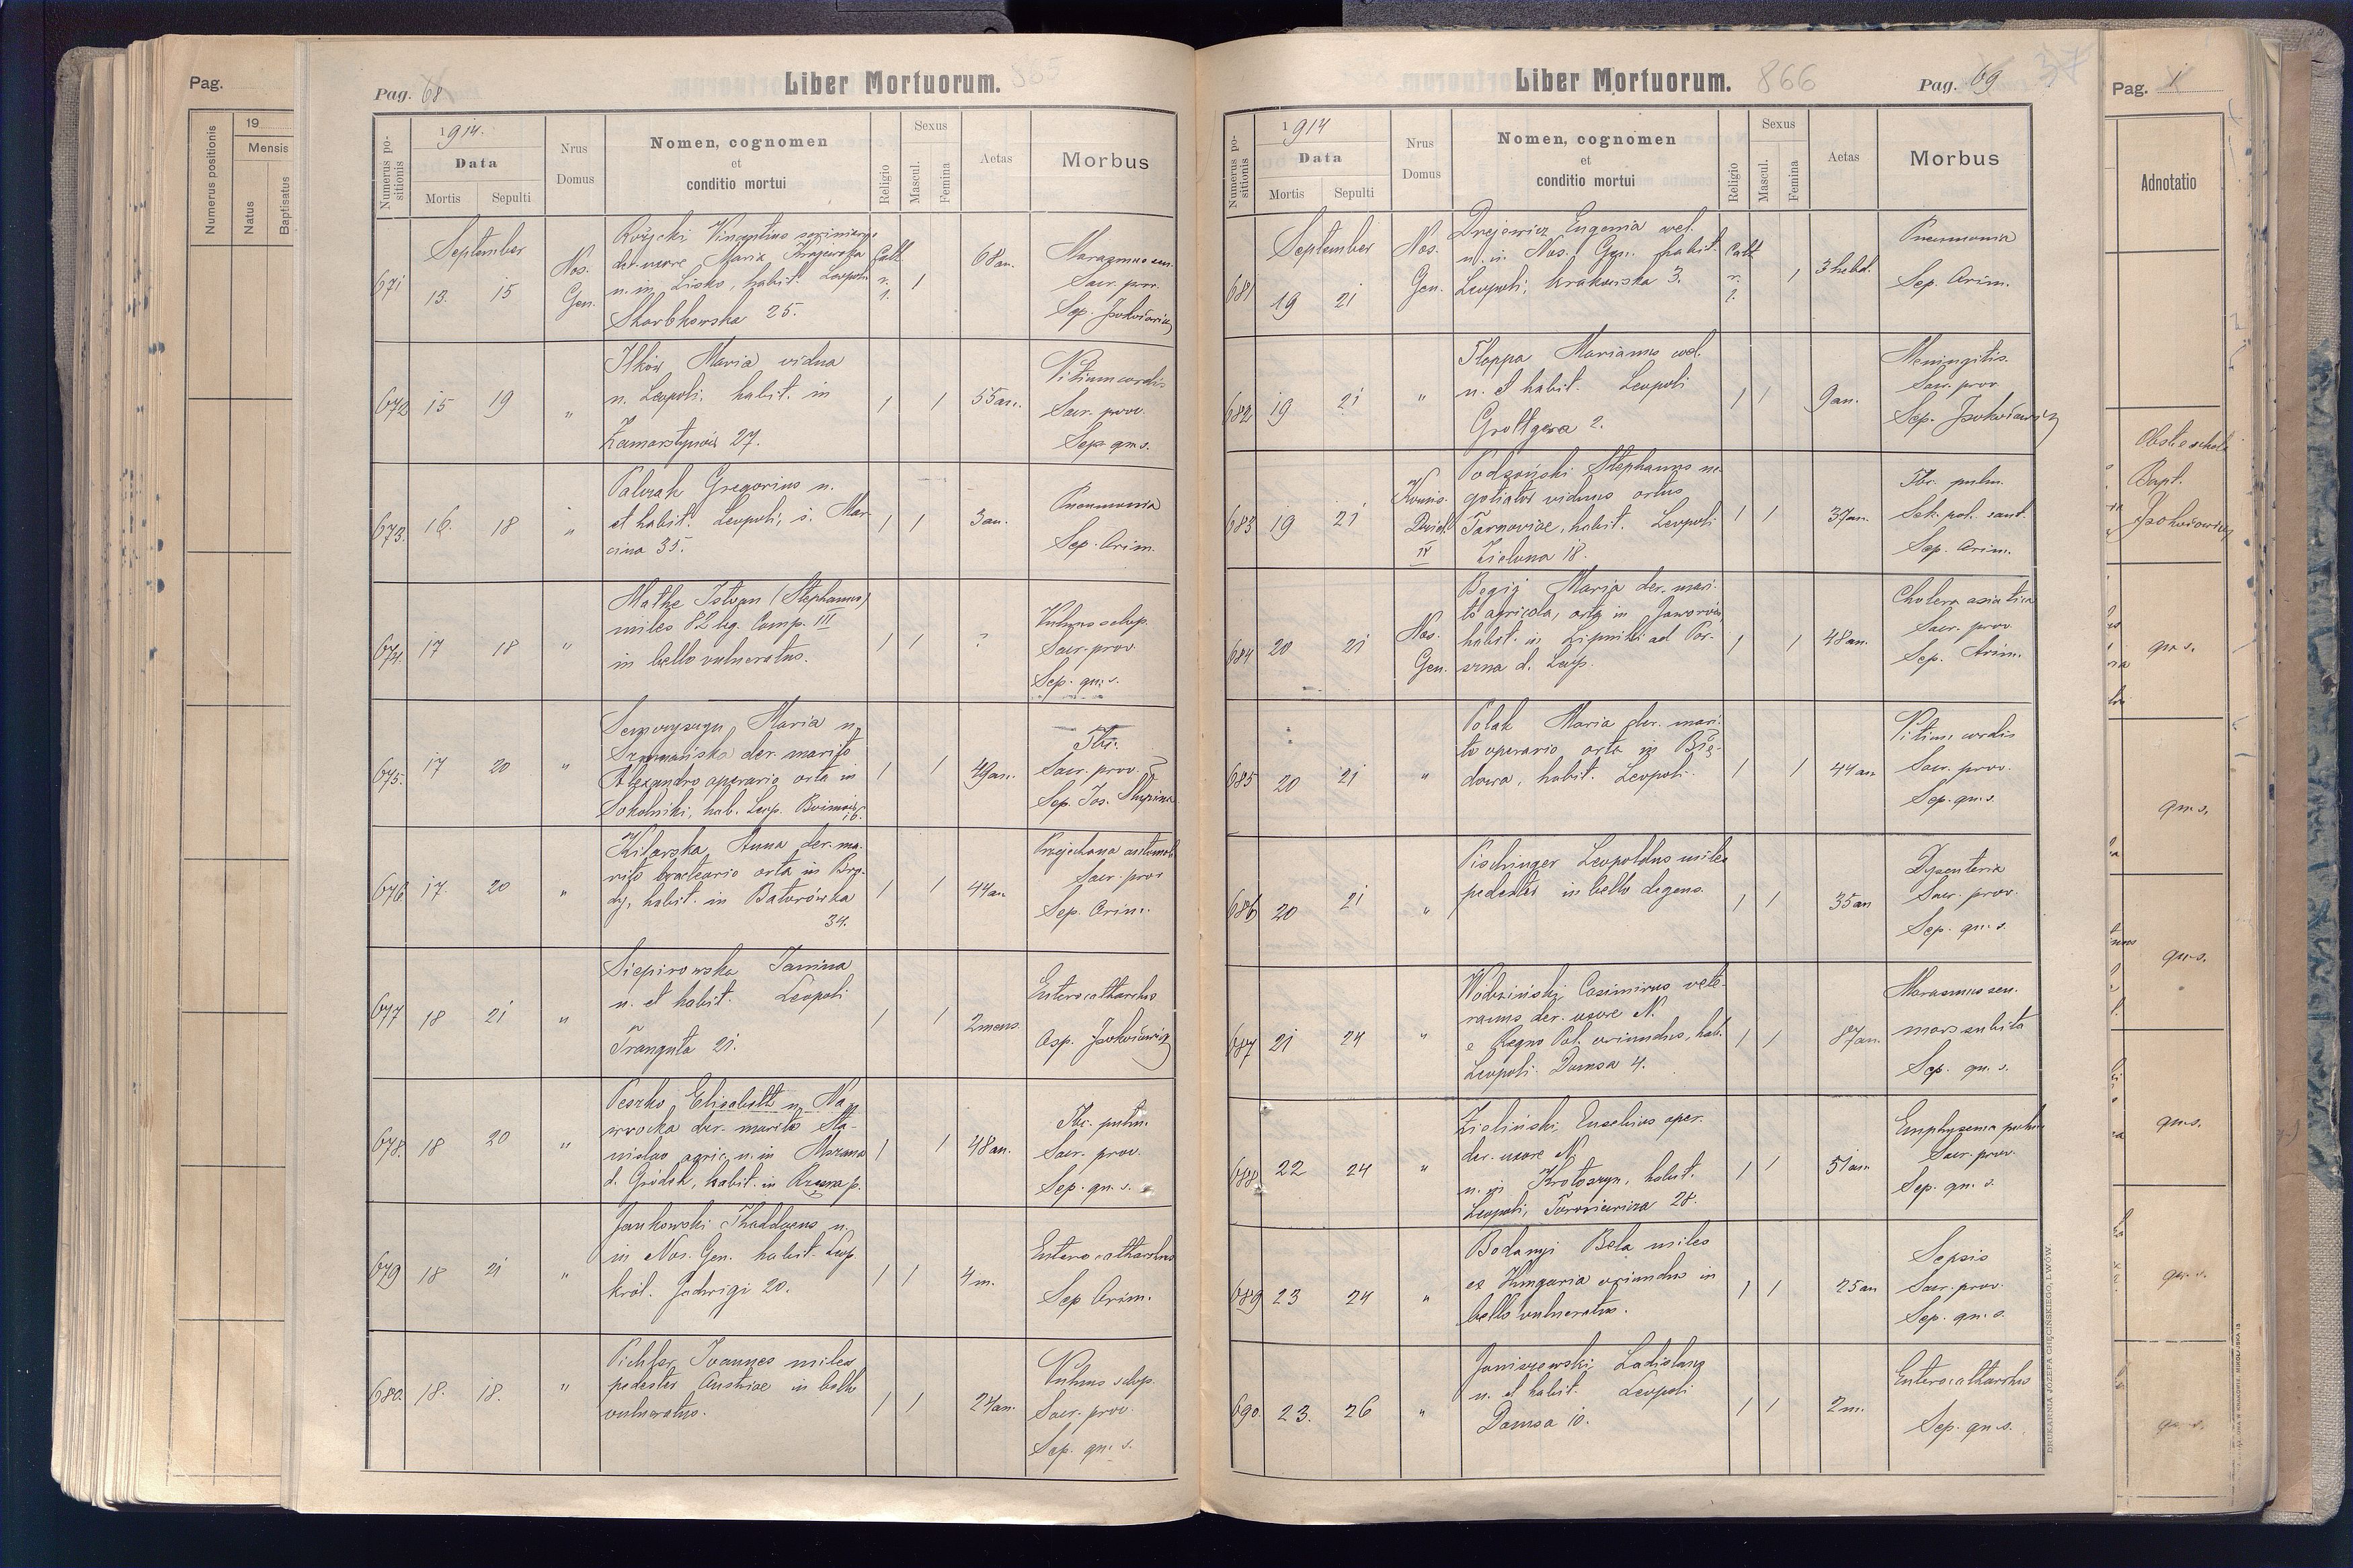 Pag.
19
Mensis
Numerus positionis
Natus
Baptisatus
Pag. 68
Liber Mortuorum.
Numerus positionis
1914.
Data
Mortis
Sepulti
Nrus
Domus
Nomen, cognomen
et
conditio mortui
Religio
Sexus
Mascul.
Femina
Aetas
Morbus
September
671
13.
15
Nos.
Gen.
der. uxore Maria
n. in Lisko, habit. Leopoli
Skarbkowska 25.
Cath
r.
l.
1
68 an.
Marasmus sen.
Sacr. prov.
Sep.
672
15
19
"
Ilków Maria vidua
n. Leopoli, habit. in
Zamarstynów 27.
1
1
55 an.
Vitium cordis
Sacr. prov.
Sep. qu. s.
673.
16.
18
"
Gregorius n.
et habit. Leopoli, ś. Mar-
cina 35.
1
1
3 an.
Pneumonia
Sep. Arim.
674.
17
18
"
Mathe Istvan (Stephanus)
miles 82 leg. Comp. III
in bello vulneratus.
1
1
?
Vulnus sclop.
Sacr. prov.
Sep. qu. s.
675.
17
20
"
Maria n.
der. marito
Alexandro operario orta in
Sokolniki, hab. Leop.
1
1
49 an.
Tbc.
Sacr. prov.
Sep. Jos.
676
17.
20
"
Kilarska Anna der. ma-
rito bracteario orta in Bro-
dy, habit. in Batorówka
34.
1
1
44 an.
Przejechana automob
Sacr. prov
Sep. Arim.
677
18
21
"
Janina
n. et habit. Leopoli
21.
1
1
2 mens.
Enterocatharrhus
678.
18
20
"
Peszko Elisabeth n. Na-
wrocka der. marito Sta-
nislao agric. n. in
d. Gródek, habit. in Rzęsna p.
1
1
48 an.
Tbc. pulm.
Sacr. prov.
Sep. qu. s.
679
18
21
"
Jankowski Thaddaeus n.
in Nos. Gen. habit. Leop.
król. Jadwigi 20.
1
1
4 m.
Enterocatharrhus
Sep Arim.
680.
18.
18.
"
Pichler Joannes miles
pedester Austriae in bello
vulneratus.
1
1
24 an.
Vulnus sclop.
Sacr. prov.
Sep. qu. s.
Liber Mortuorum. 866
Pag. 69
37
Numerus positionis
1914
Data
Mortis
Sepulti
Nrus
Domus
Nomen, cognomen
et
conditio mortui
Religio
Sexus
Mascul.
Femina
Aetas
Morbus
September
681
19
21
Nos.
Gen.
Drejewicz Eugenia coel.
n. in Nos. Gen. habit.
Leopoli, Krakowska 3.
Cath
r.
l.
1
3 hebd.
Pneumonia
Sep. Arim.
682
19
21
"
Marianus coel.
n. et habit. Leopoli
Grottgera 2.
1
1
9 an.
Meningitis.
Sacr. prov.
Sep.
683
19
21
IV
Stephanus ne-
gotiator viduus ortus
Tarnoviae, habit. Leopoli
Zielona 18.
1
1
37 an.
Tbc. pulm.
Sep. Arim.
684
20
21
Nos.
Gen.
Maria der. mari-
to agricola, orta in Jaworów,
habit. in Lipniki ad Por-
szna d. Leop.
1
1
48 an.
Cholera asiatica
Sacr. prov.
Sep. Arim.
685
20
21
"
Polak Maria der. mari-
to operario, orta in
habit. Leopoli.
1
1
44 an
Vitium cordis
Sacr. prov.
Sep. qu. s.
686
20
21
"
Pischinger Leopoldus miles
pedester in bello degens.
1
1
35 an
Dysenteria
Sacr. prov.
Sep. qu. s.
687
21
24
"
Wodziński Casimirus vete-
ranus der. uxore N.
e Regno Pol. oriundus, hab.
Leopoli Domsa 4.
1
1
87 an.
Marasmus sen.
mors subita
Sep. qu. s.
688
22
24
"
Zieliński Eusebius oper.
der. uxore N.
n. in Krotoszyn, habit.
Leopoli, Torosiewicza 28.
1
1
51 an.
Emphysema pulm
Sacr. prov.
Sep. qu. s.
689
23
24
"
Bodanyi Bela miles
ex Hungaria oriundus in
bello vulneratus.
1
1
25 an
Sepsis
Sacr. prov.
Sep. qu. s.
690.
23.
26
"
Janiszewski Ladislaus
n. et habit. Leopoli
Domsa 10.
1
1
2 m.
Enterocatharrhus
Sep. qu. s.
DRUKARNIA JÓZEFA CHĘCIŃSKIEGO, LWÓW.
Pag.
Adnotatio
Bapt.
qu. s.
qu. s.
qu. s.
qu. s.
qu. s.
qu. s.